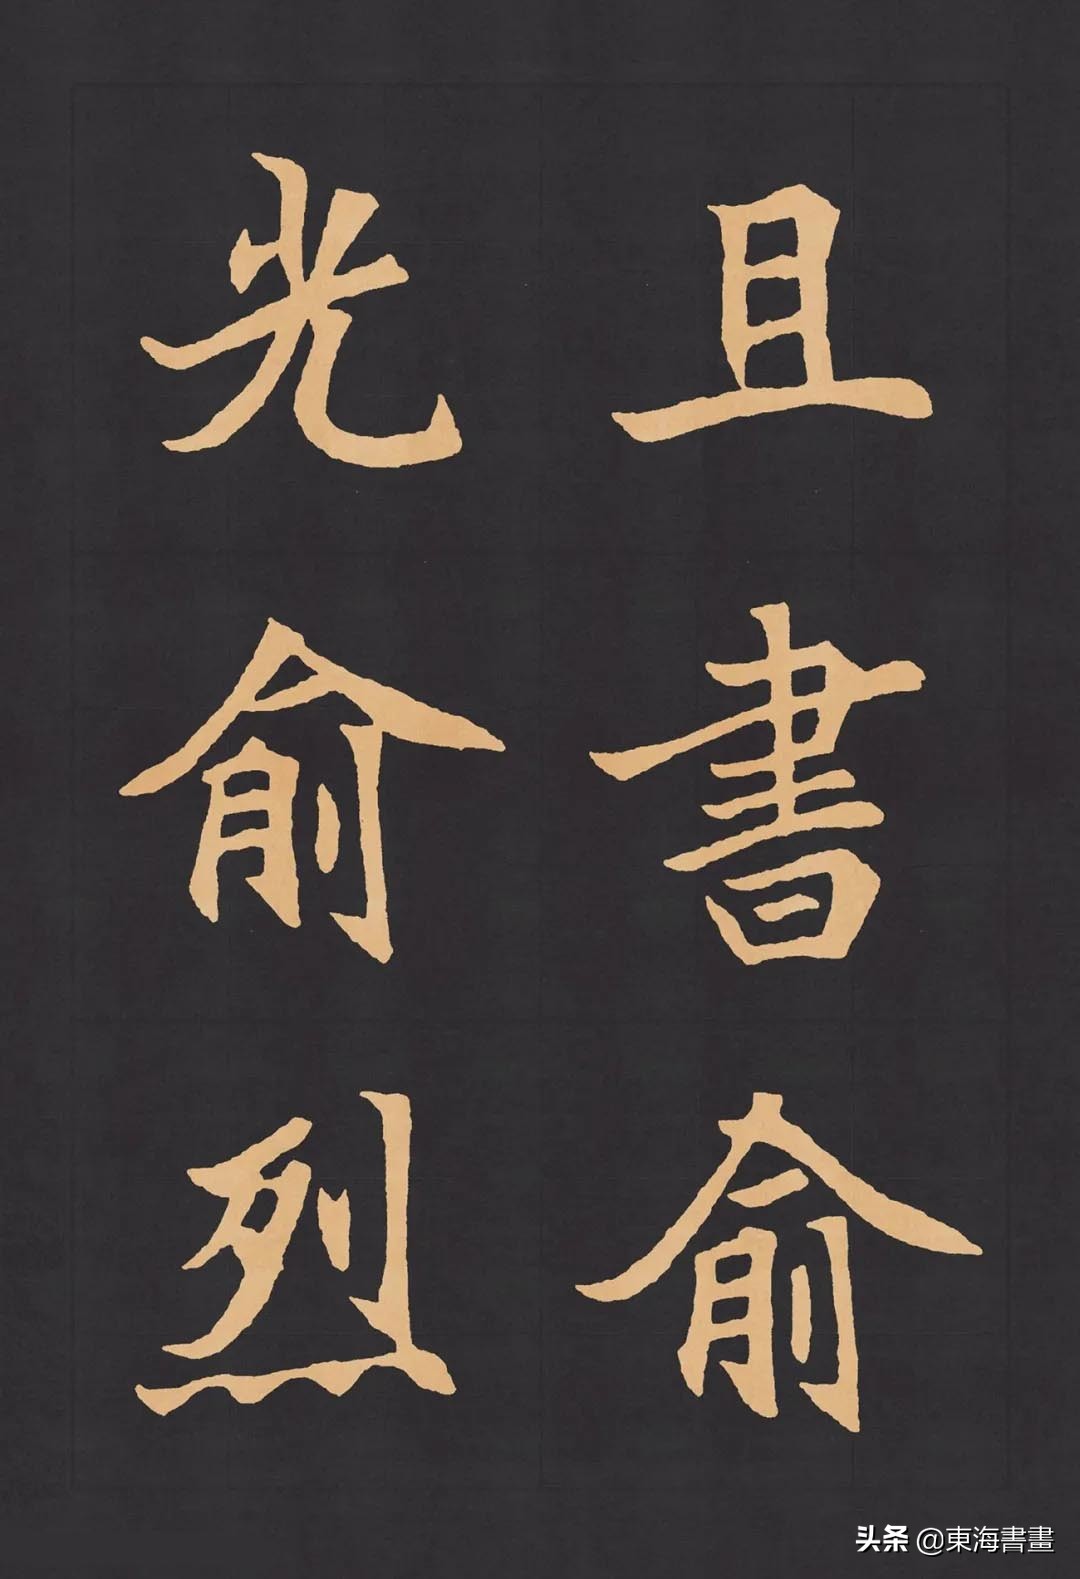 且書俞
光俞烈
头条 @東海書畫